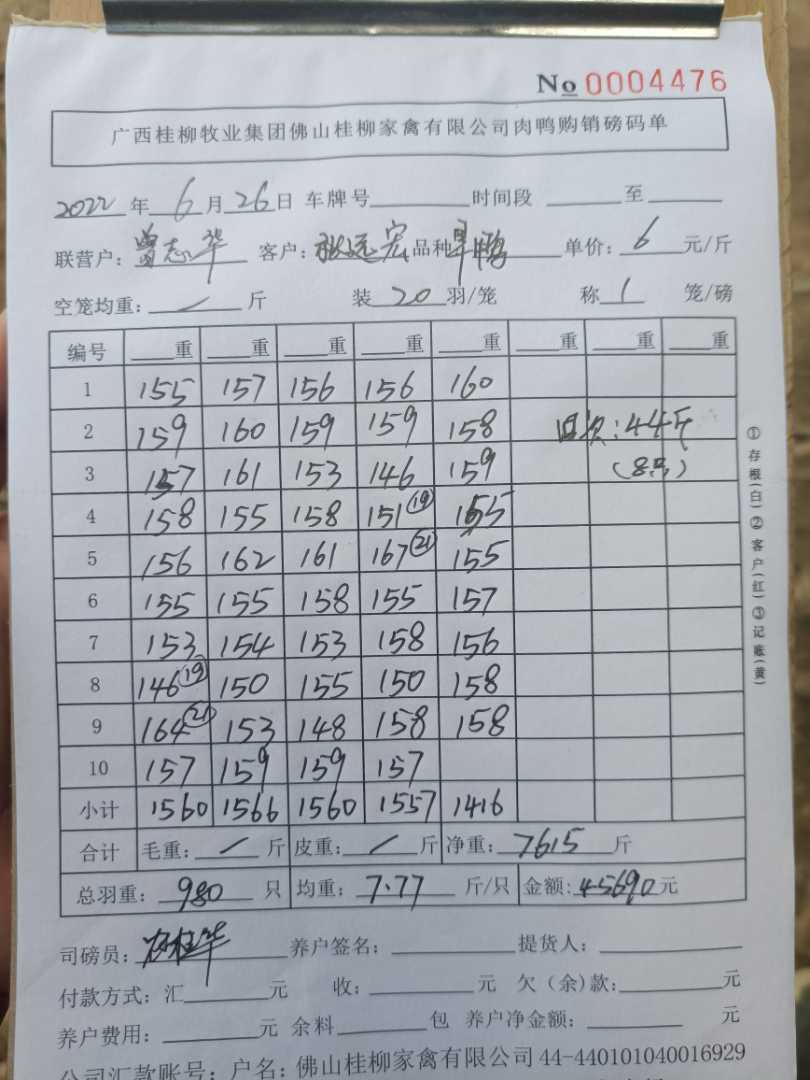 No 0004476
广西桂柳牧业集团佛山桂柳家禽有限公司肉鸭购销磅码单
2022 年 6 月 26 日 车牌号 时间段 至
联营户: 曾志华 客户: 张远宏 品种 旱鸭 单价: 6 元/斤
空笼均重: / 斤 装 20 羽/笼 称 1 笼/磅
编号 重 重 重 重 重 重 重 重
1 155 157 156 156 160
2 159 160 159 159 158 四次: 44斤
3 157 161 153 146 159 (8只)
4 158 155 158 151(19) 155
5 156 162 161 167(21) 155
6 155 155 158 155 157
7 153 154 153 158 156
8 146(19) 150 155 150 158
9 164(21) 153 148 158 158
10 157 159 159 157
小计 1560 1566 1560 1557 1416
合计 毛重: / 斤 皮重: / 斤 净重: 7615 斤
总羽重: 980 只 均重: 7.77 斤/只 金额: 45690 元
司磅员: 养户签名: 提货人:
付款方式: 汇 元 收: 元 欠(余)款: 元
养户费用: 元 余料 包 养户净金额: 元
公司汇款账号: 户名: 佛山桂柳家禽有限公司 44-440101040016929
①存根(白)②客户(红)③记账(黄)